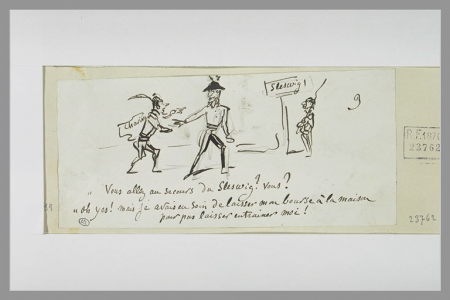 Sleswig!
9
" Vous allez au secours du Sleswig? Vous?
" oh yes! mais je avais eu soin de laisser mon bourse à la maison
pour pas laisser entrainer moi!
23762
23762